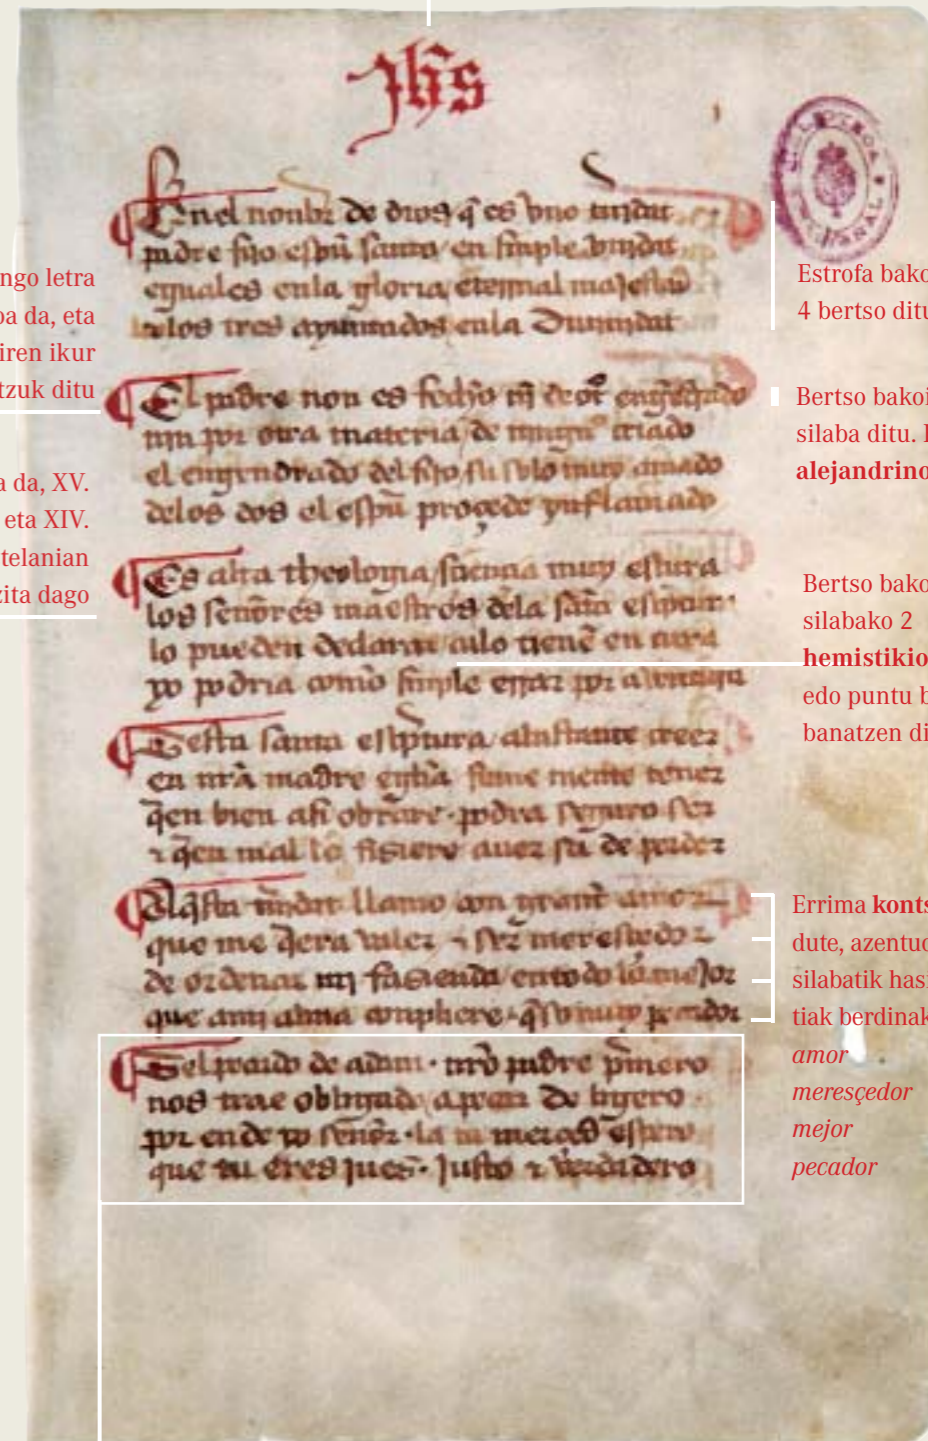 Jhs
En el nonbre de dios q̄ es vno trinidat
padre fijo espũ santo en sinple vnidat
eguales en la gloria eternal majestad
e los tres ayuntados en la Diuinidat
El padre non es fecho nĩ de ot° engẽdrado
nin por otra materia de ningũ° criado
el engendrado del fijo su solo muy amado
delos dos el espũ proçede ynflamado
Es alta theologia sciencia muy escura
los señores maestros dela sãta escriptura
lo pueden declarar ca lo tienẽ en cura
yo podria como sinple errar por auentura
Desta santa escriptura abastante creer
en nr̃a madre egłia firme mente tener
q̄en bien asi obrare · podra seguro ser
τ q̄en mal lo fisiere auer sa de perder
Aq̄sta trinidat llamo con grant amor
que me q̄era valer τ ser meresçedor
de ordenar mj fasienda en todo lo mejor
que a mj alma conpliere q̄ so muy pecador
Del pecado de adam · nr̃o padre p̃mero
nos trae obligado a pecar de ligero ·
por ende yo señor · la tu merced espero
que tu eres jues · justo τ verdadero
ngo letra
oa da, eta
iren ikur
tzuk ditu
a da, XV.
eta XIV.
telanian
zita dago
Estrofa bako
4 bertso ditu
Bertso bakoi
silaba ditu.
alejandrino
Bertso bako
silabako 2
hemistikio
edo puntu b
banatzen di
Errima konts
dute, azentud
silabatik hasi
tiak berdinak
amor
meresçedor
mejor
pecador